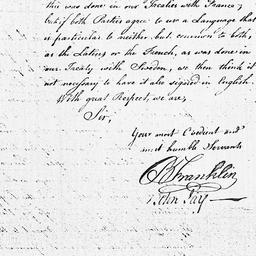 this was done in our Treaties with France;
but if both Parties agree to use a Language that
is particular to neither, but common to both,
as the Latin or the French, as was done in
our Treaty with Sweden, we then think it
not necessary to have it also signed in English.
With great Respect, we are,
Sir,
Your most Obedient and
most humble Servants
B Franklin
John Jay